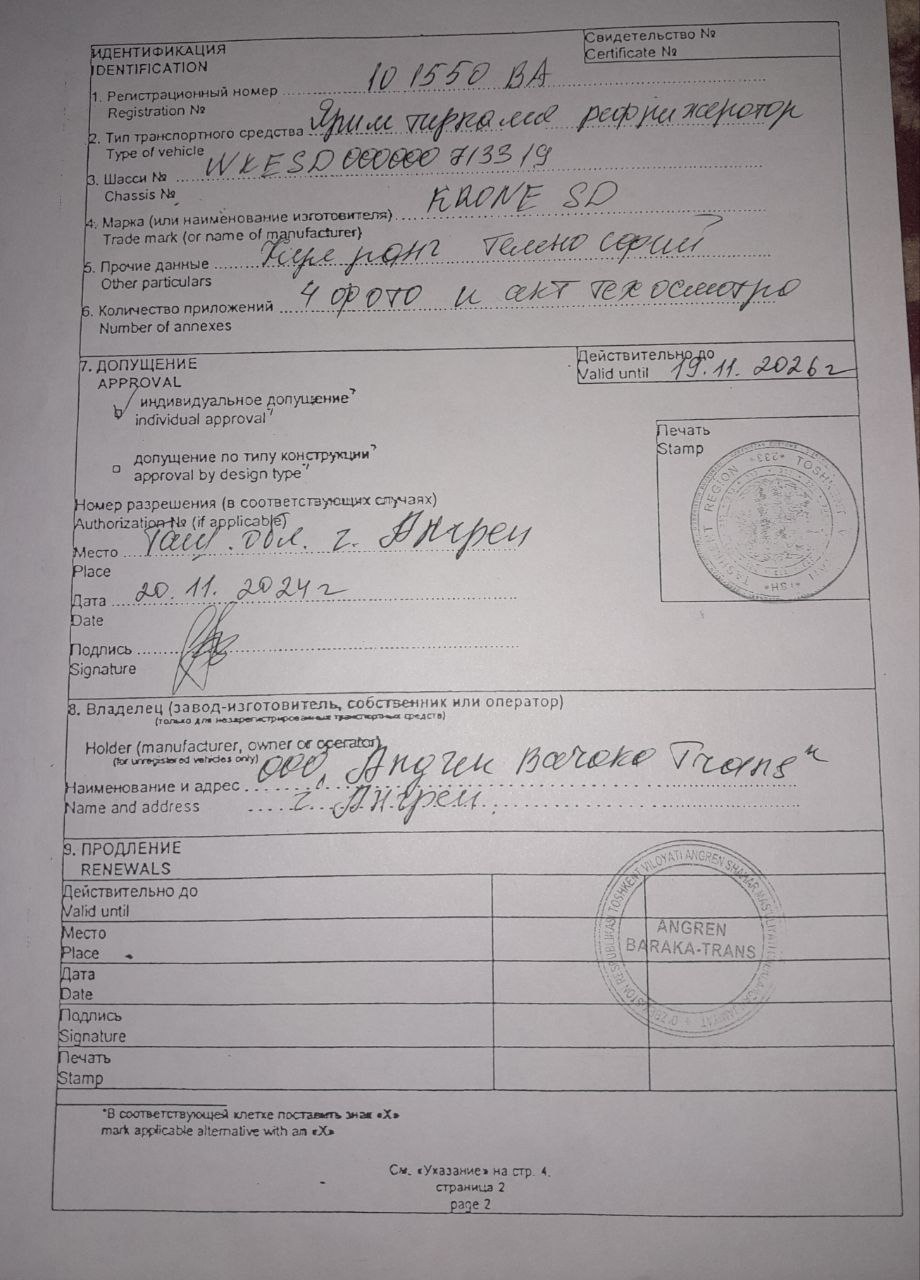 ИДЕНТИФИКАЦИЯ
IDENTIFICATION
Свидетельство №
Certificate №
1. Регистрационный номер 10 1550 BA
Registration №
2. Тип транспортного средства Ярим тиркама рефрижератор
Type of vehicle
3. Шасси № WKESD000000713319
Chassis №
4. Марка (или наименование изготовителя) KRONE SD
Trade mark (or name of manufacturer)
5. Прочие данные ранг
Other particulars
6. Количество приложений 4 фото и акт техосмотра
Number of annexes
7. ДОПУЩЕНИЕ
APPROVAL
Действительно до
Valid until 19.11.2026 г
индивидуальное допущение*
individual approval*
допущение по типу конструкции*
approval by design type*
Печать
Stamp
TASHKENT REGION
*233*
Номер разрешения (в соответствующих случаях)
Authorization № (if applicable)
Место Таш. обл. г. Ангрен
Place
Дата 20.11.2024 г
Date
Подпись
Signature
8. Владелец (завод-изготовитель, собственник или оператор)
(только для незарегистрированных транспортных средств)
Holder (manufacturer, owner or operator)
(for unregistered vehicles only)
Наименование и адрес ООО "Trans"
Name and address г. Ангрен
9. ПРОДЛЕНИЕ
RENEWALS
Действительно до
Valid until
Место
Place
Дата
Date
Подпись
Signature
Печать
Stamp
O'ZBEKISTON RESPUBLIKASI TOSHKENT VILOYATI ANGREN SHAHAR
ANGREN
BARAKA-TRANS
*В соответствующей клетке поставить знак «X»
mark applicable alternative with an «X»
См. «Указание» на стр. 4.
страница 2
page 2